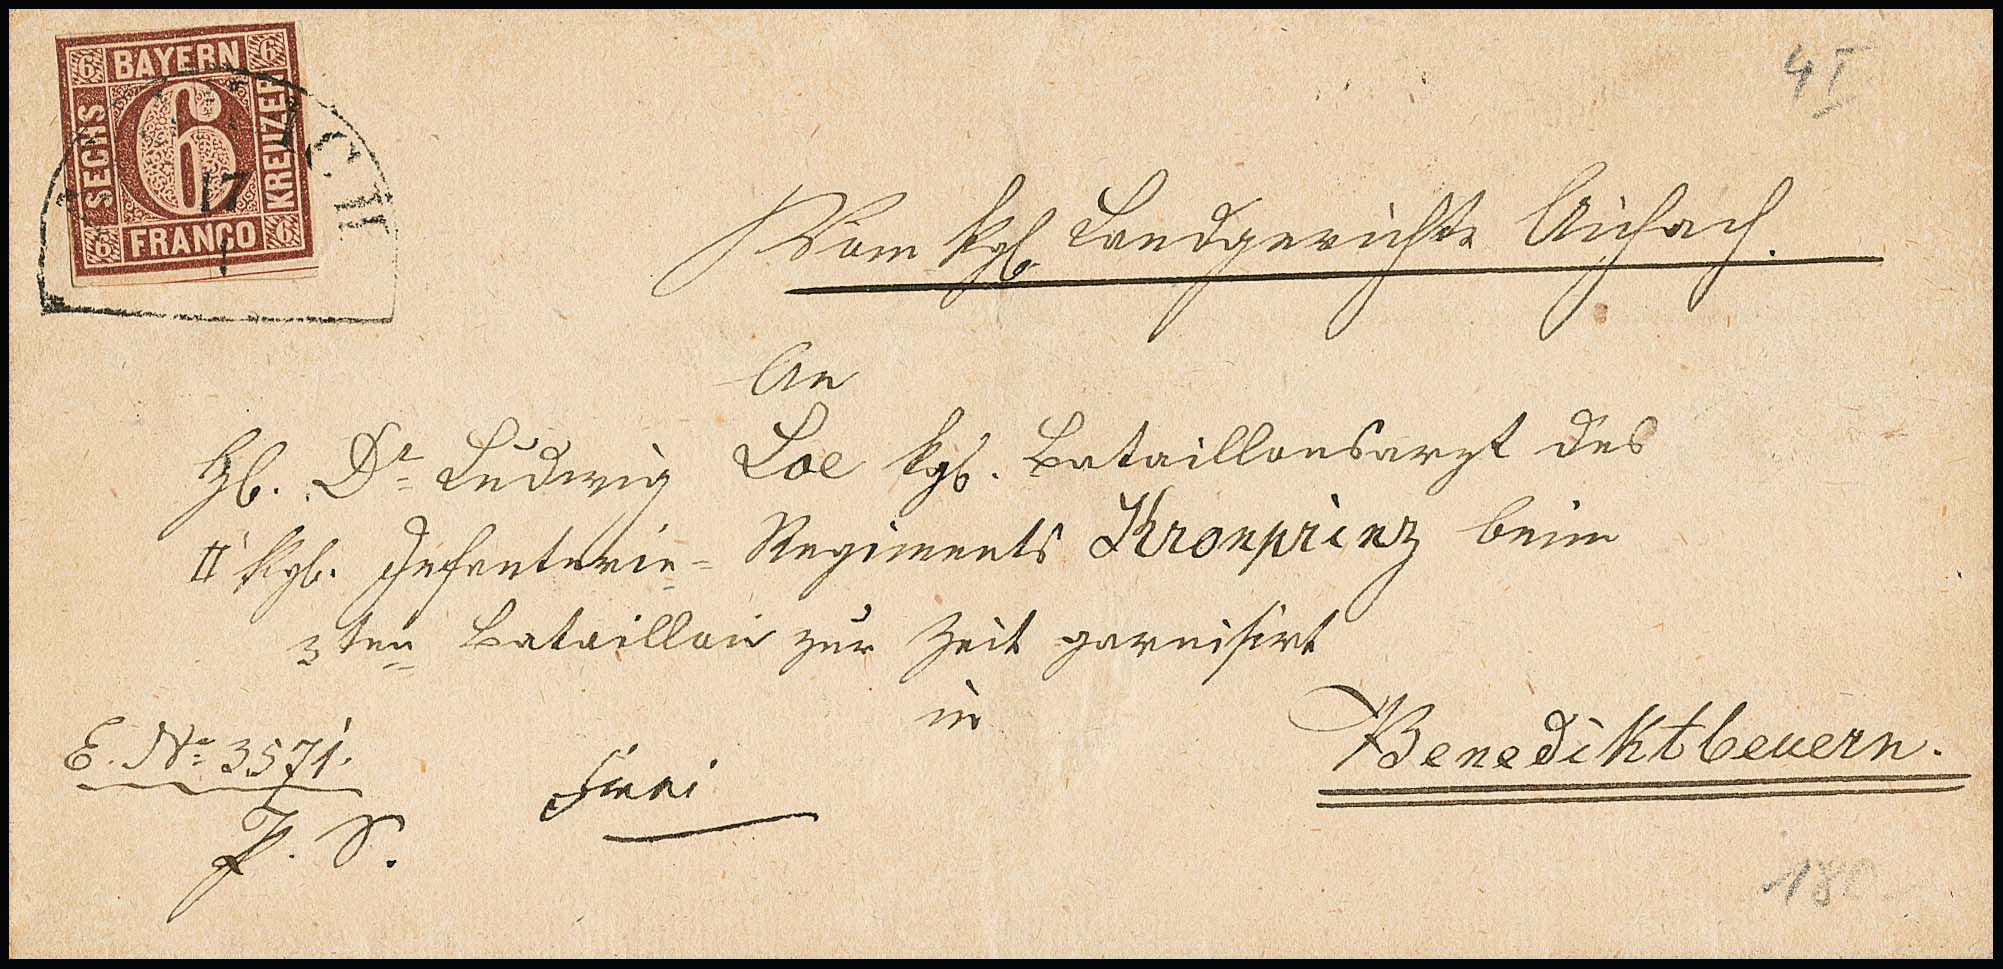 BAYERN
SECHS
6
KREUZER
FRANCO
6 6 6 6
17
1
4 I
Vom kgl. Landgerichte Aichach.
An
Dr Ludwig Loe kgl. Bataillonsarzt des
II kgl. Infanterie= Regiments Kronprinz beim
3ten Bataillon zur Zeit garnisirt
in
Benediktbeuern.
E. No 3571.
frei
P. S.
180